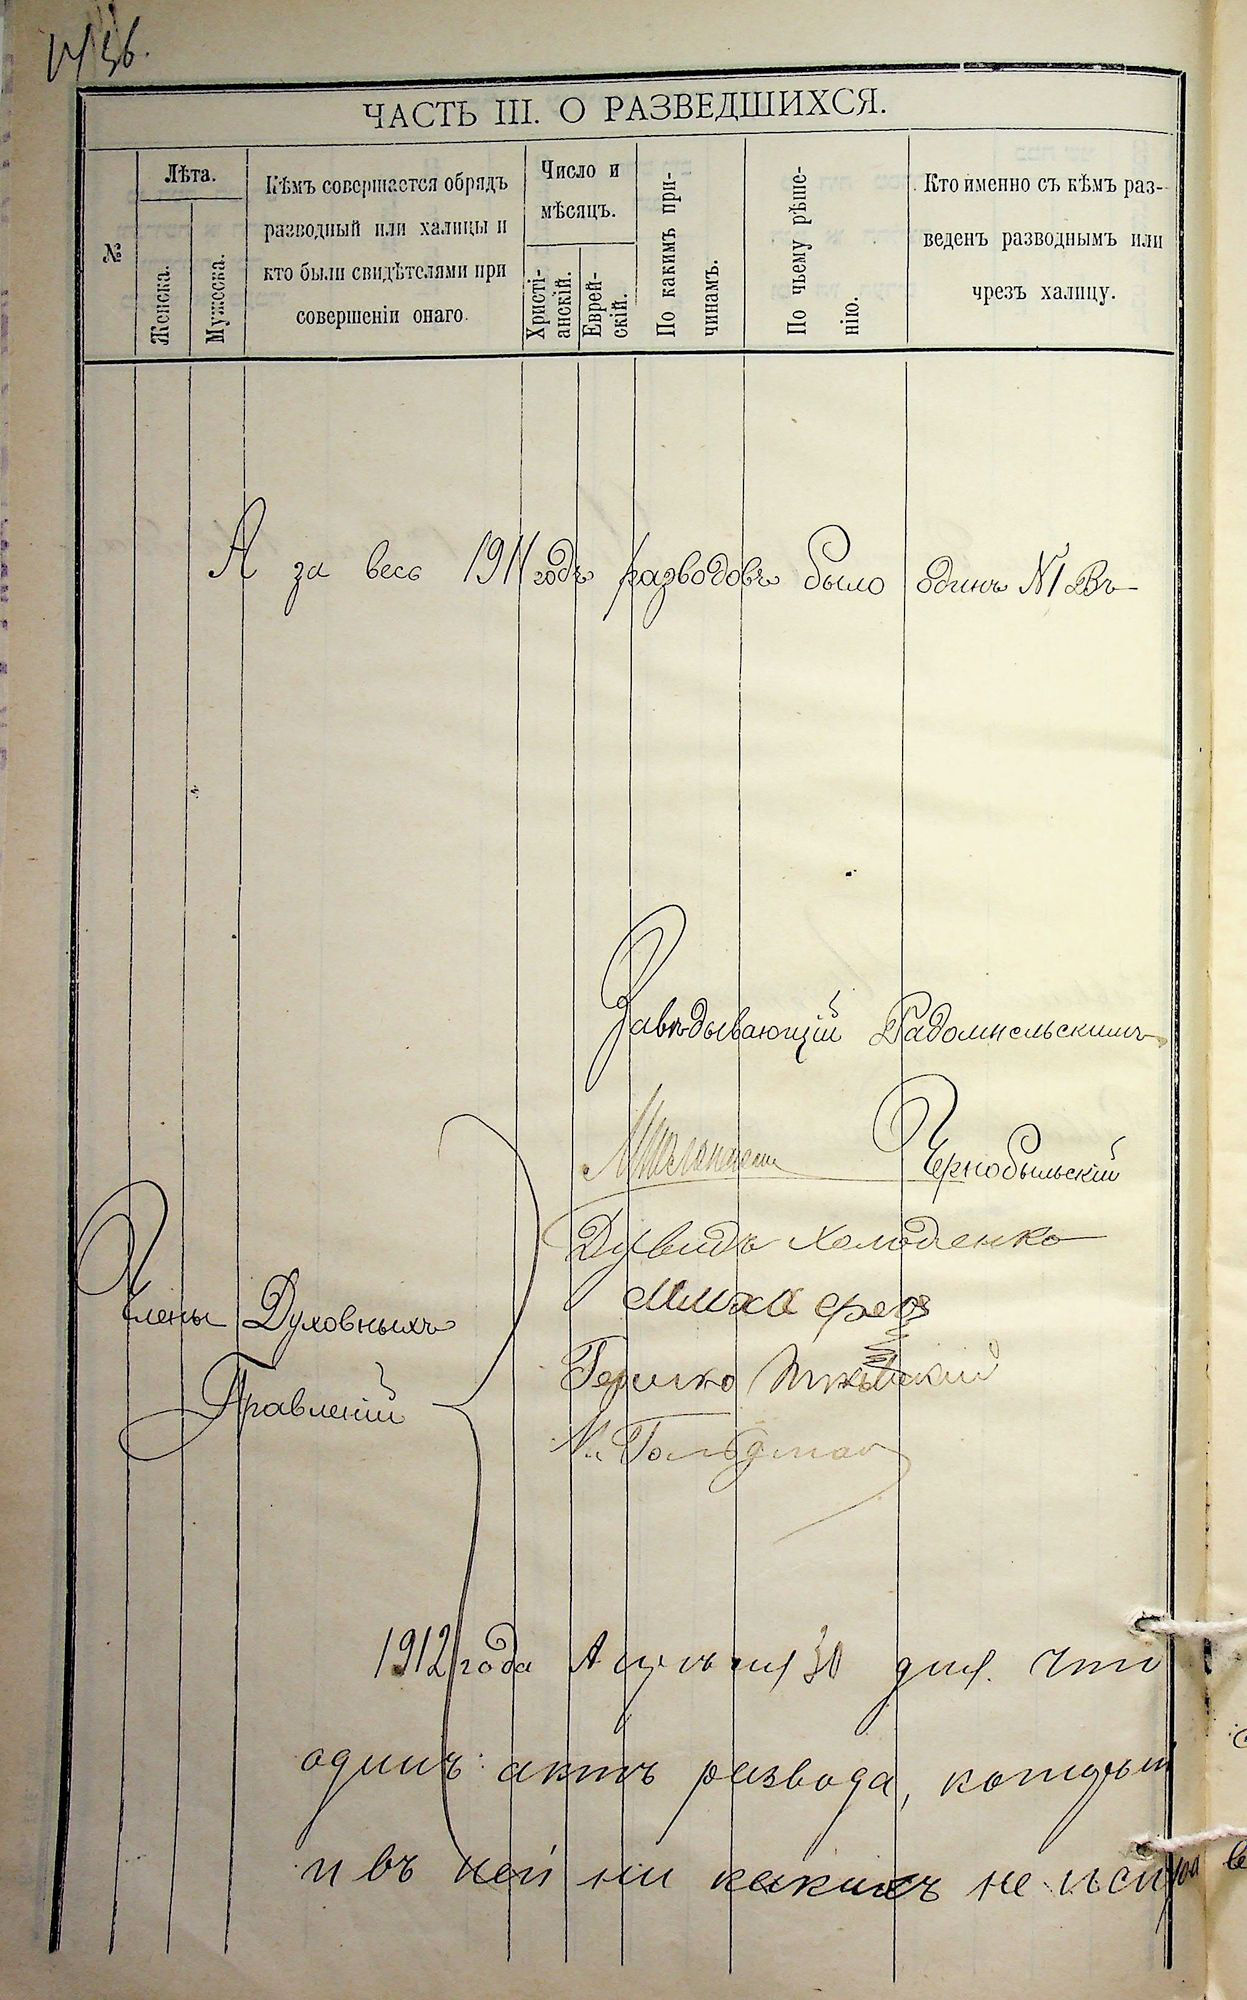 ЧАСТЬ III. О РАЗВЕДШИХСЯ.
№
Лѣта.
Женска.
Мужеска.
Кѣмъ совершается обрядъ
разводный или халицы и
кто были свидѣтелями при
совершеніи онаго.
Число и
мѣсяцъ.
Христі-
анскій.
Еврей-
скій.
По какимъ при-
чинамъ.
По чьему рѣше-
нію.
Кто именно съ кѣмъ раз-
веденъ разводнымъ или
чрезъ халицу.
А за весь 1911 годъ разводовъ было одинъ №1 Въ
Завѣдывающій Радомысльскимъ
Чернобыльскій
Дувидъ Холоденко
Члены Духовныхъ
Гершко
Правленій
М. Гольдман
1912 года Апрѣля 30 дня. что
одинъ актъ развода, который
и въ ней ни какихъ не испра